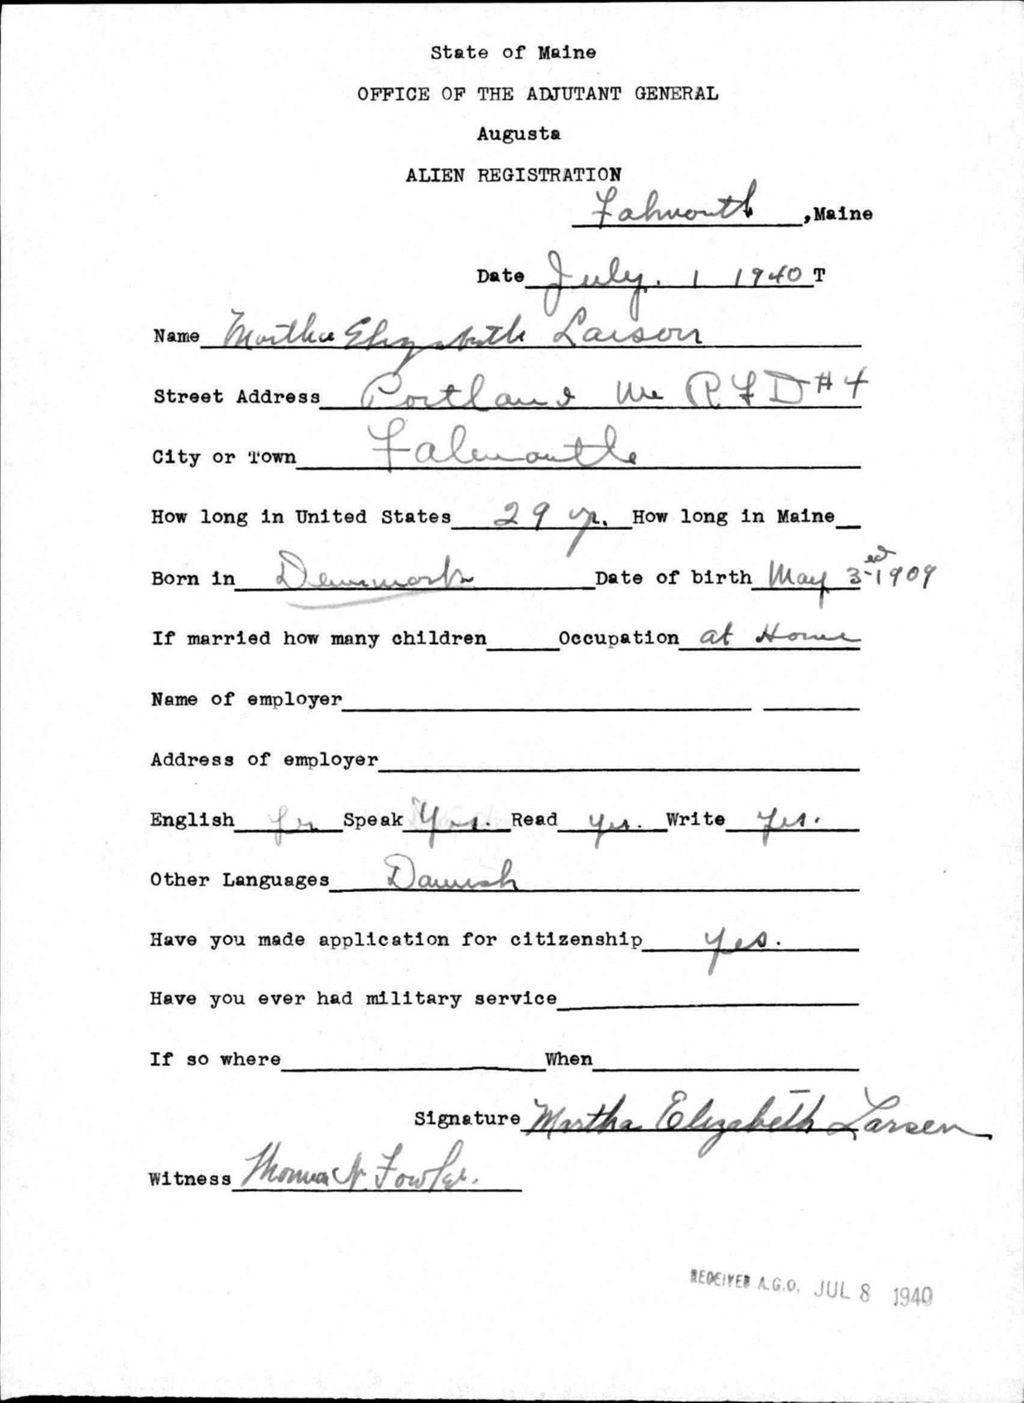 State of Maine
OFFICE OF THE ADJUTANT GENERAL
Augusta
ALIEN REGISTRATION
Falmouth, Maine
Date July. 1 1940 T
Name Martha Elizabeth Larson
Street Address Portland Me RFD #4
City or Town Falmouth
How long in United States 29 yr. How long in Maine
Born in Denmark Date of birth May 3rd 1909
If married how many children Occupation at Home
Name of employer
Address of employer
English Speak Yes. Read yes. Write Yes.
Other Languages Danish
Have you made application for citizenship yes.
Have you ever had military service
If so where When
Signature Martha Elizabeth Larsen
Witness Thomas N. Fowler.
RECEIVED A.G.O. JUL 8 1940